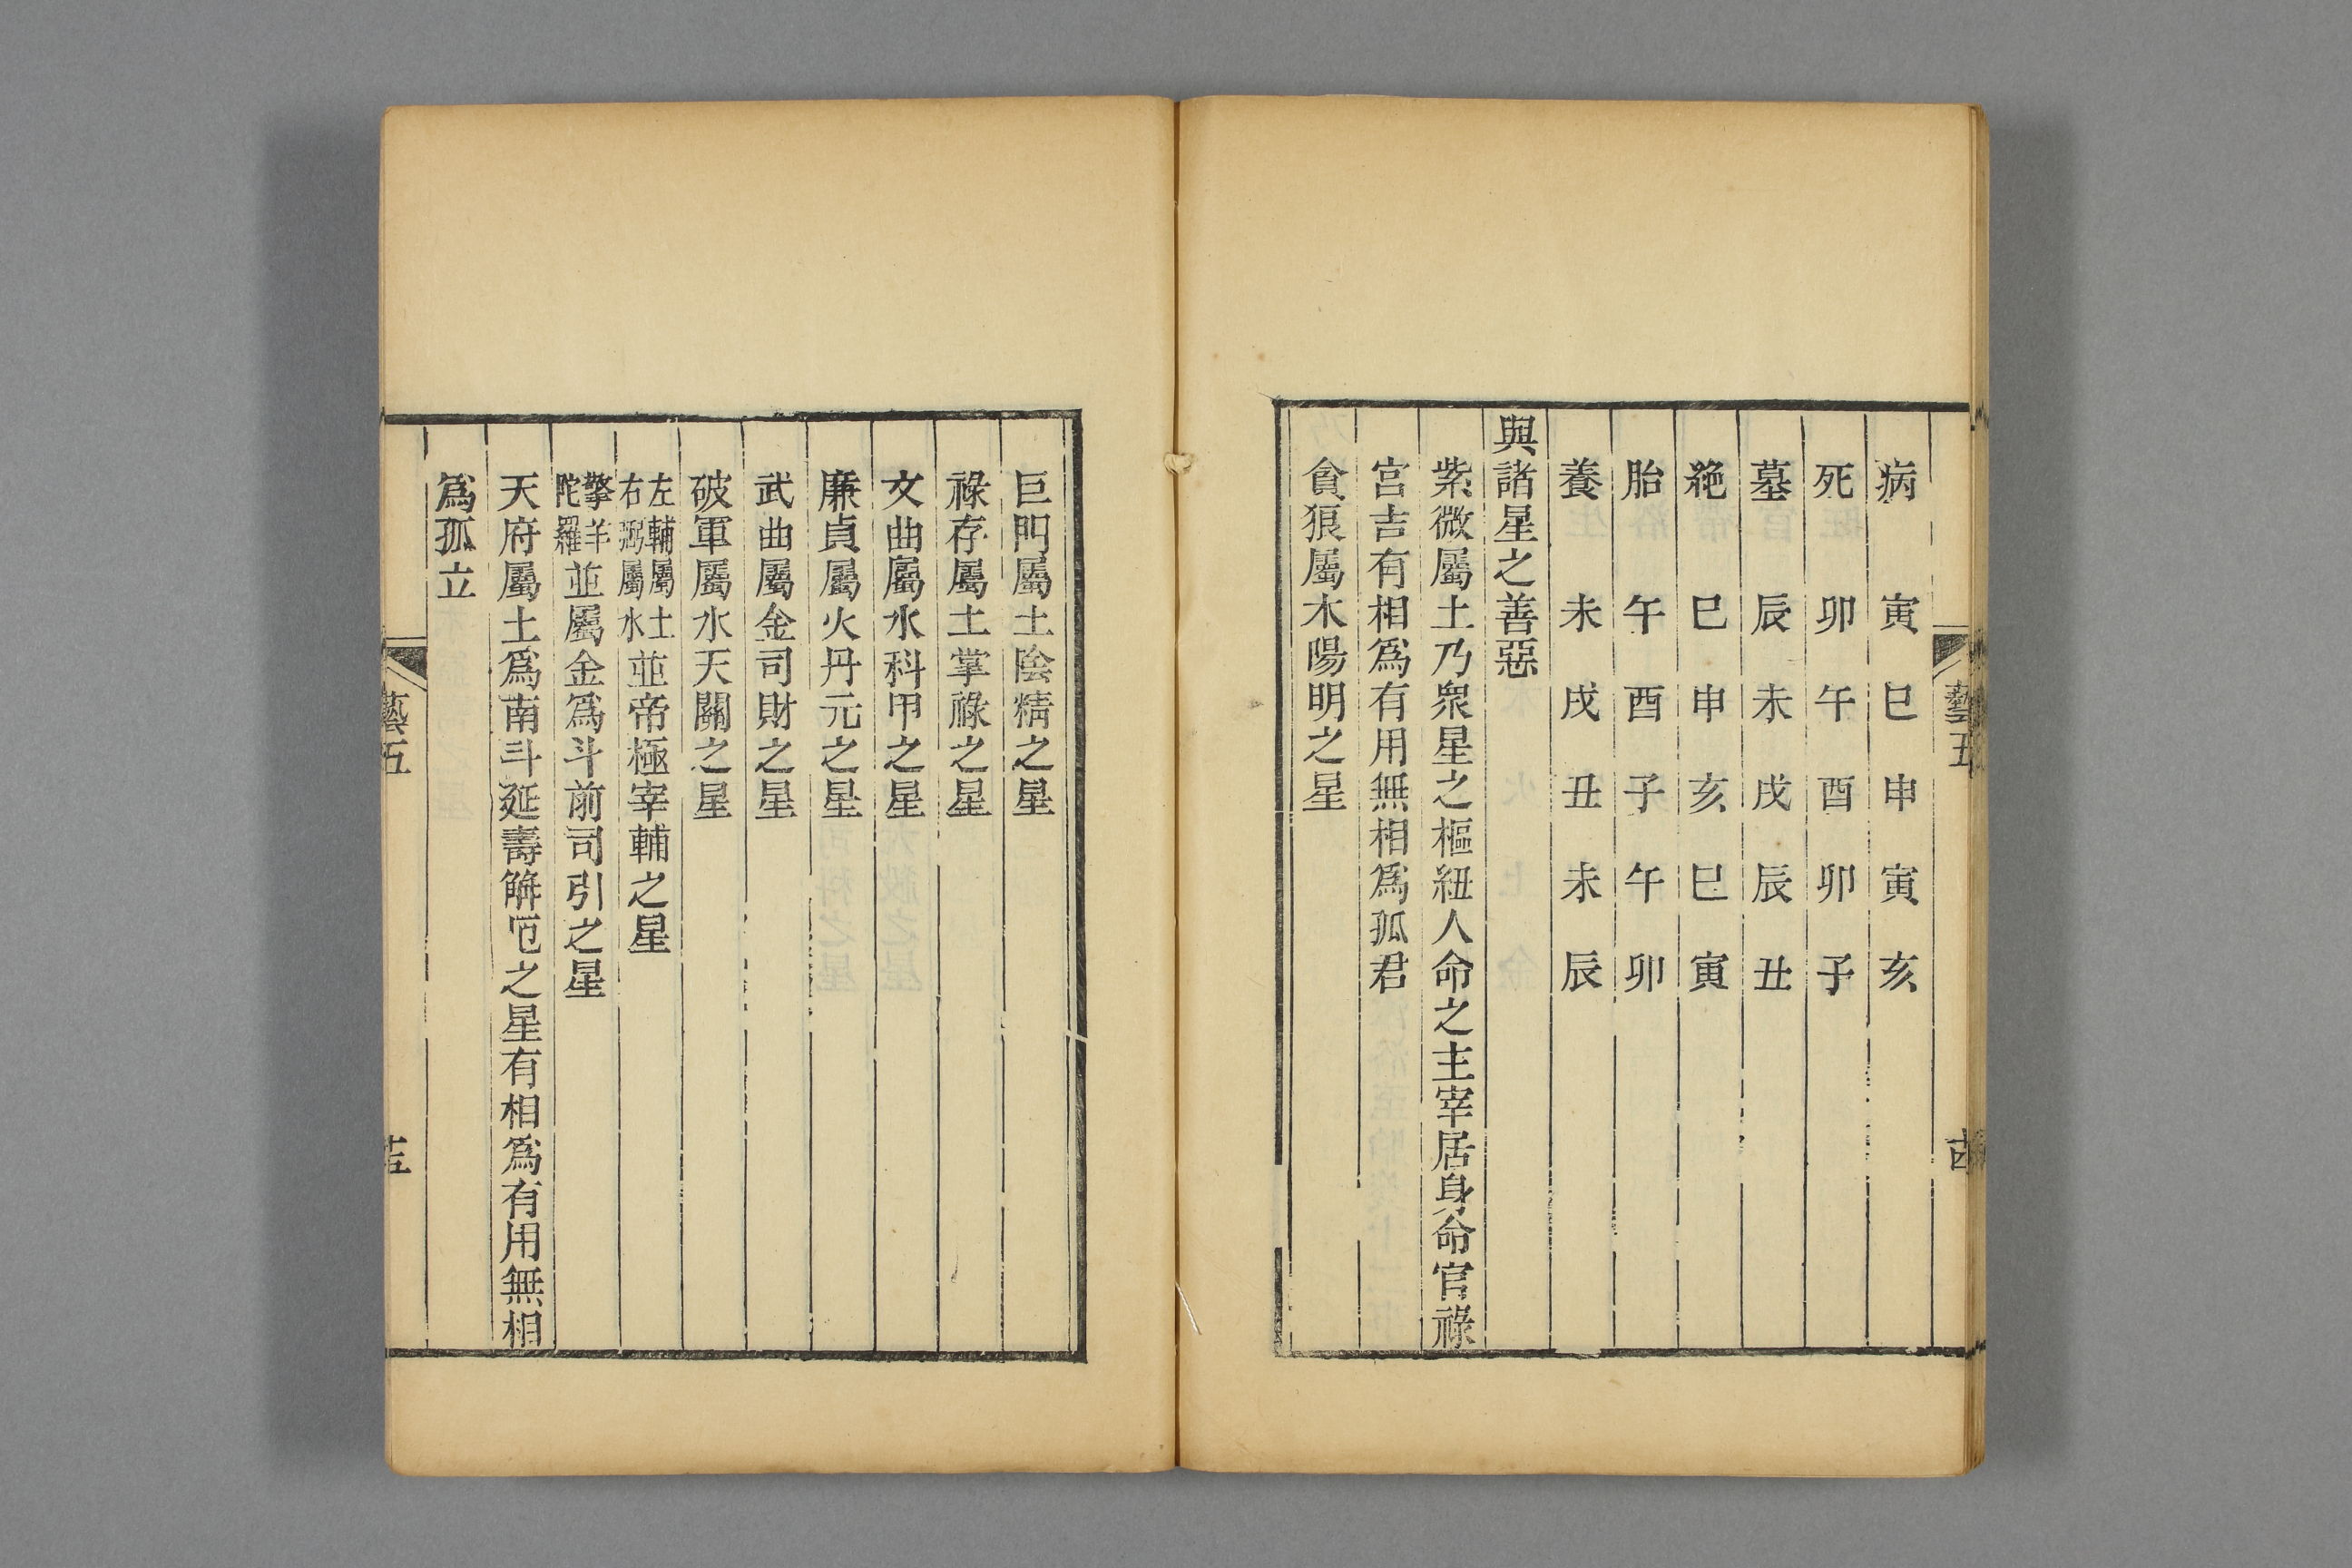 藝五
病 寅 巳 申 寅 亥
死 卯 午 酉 卯 子
墓 辰 未 戌 辰 丑
絶 巳 申 亥 巳 寅
胎 午 酉 子 午 卯
養 未 戌 丑 未 辰
與諸星之善惡
紫微屬土乃衆星之樞紐人命之主宰居身命官祿
宫吉有相爲有用無相爲孤君
貪狼屬木陽明之星
巨門屬土陰精之星
祿存屬土掌祿之星
文曲屬水科甲之星
廉貞屬火丹元之星
武曲屬金司財之星
破軍屬水天關之星
左輔屬土右弼屬水並帝極宰輔之星
擎羊陀羅並屬金爲斗前司引之星
天府屬土爲南斗延壽解厄之星有相爲有用無相
爲孤立
藝五